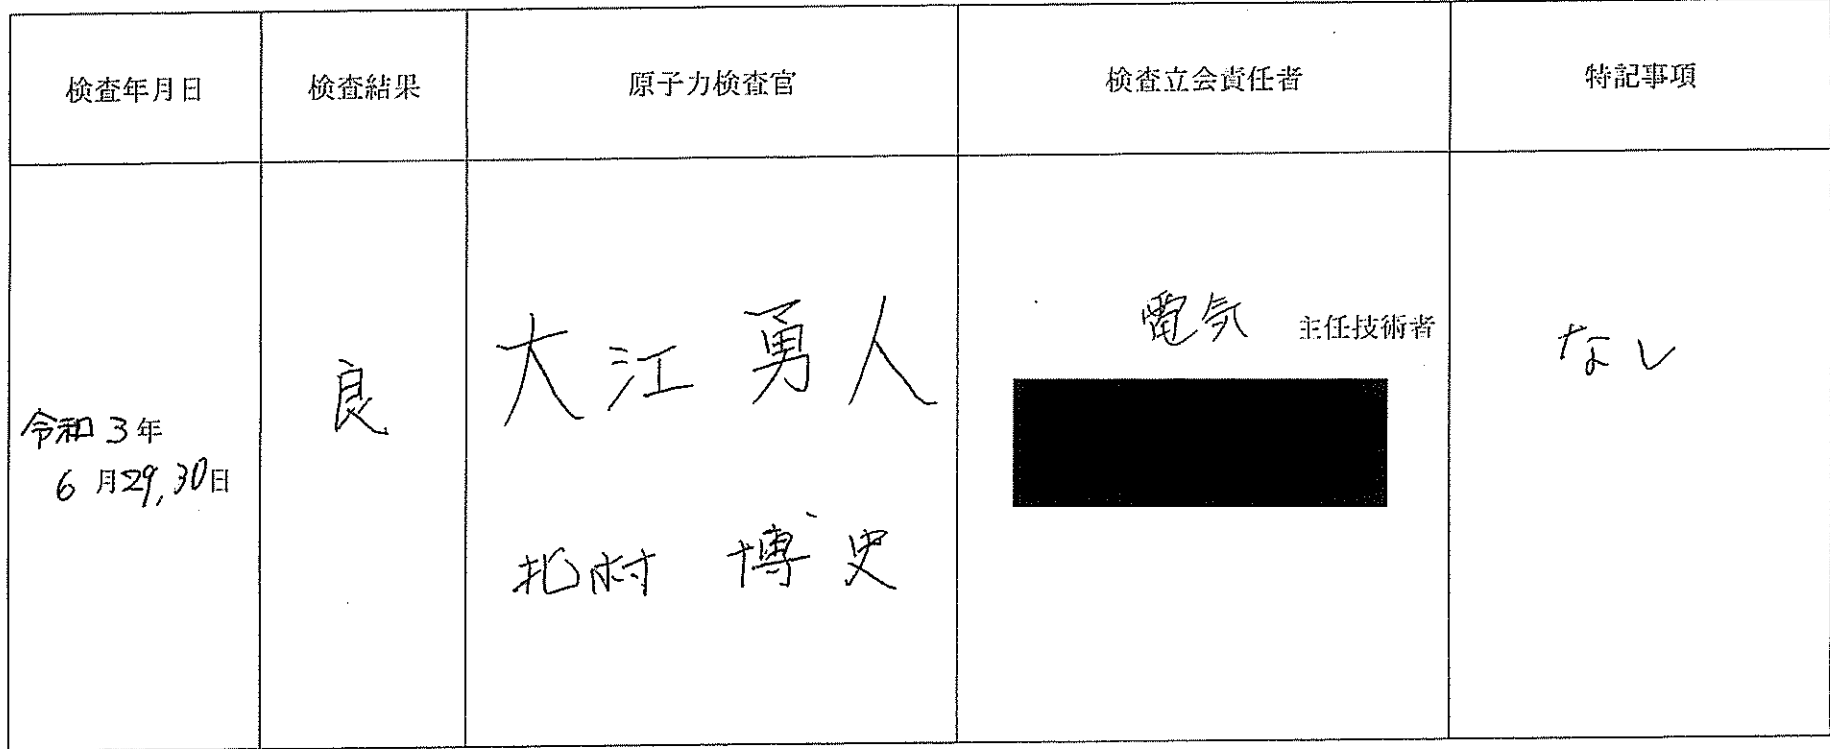 検査年月日
検査結果
原子力検査官
検査立会責任者
特記事項
令和3年
6月29,30日
良
大江 勇人
北村 博史
電気 主任技術者
なし